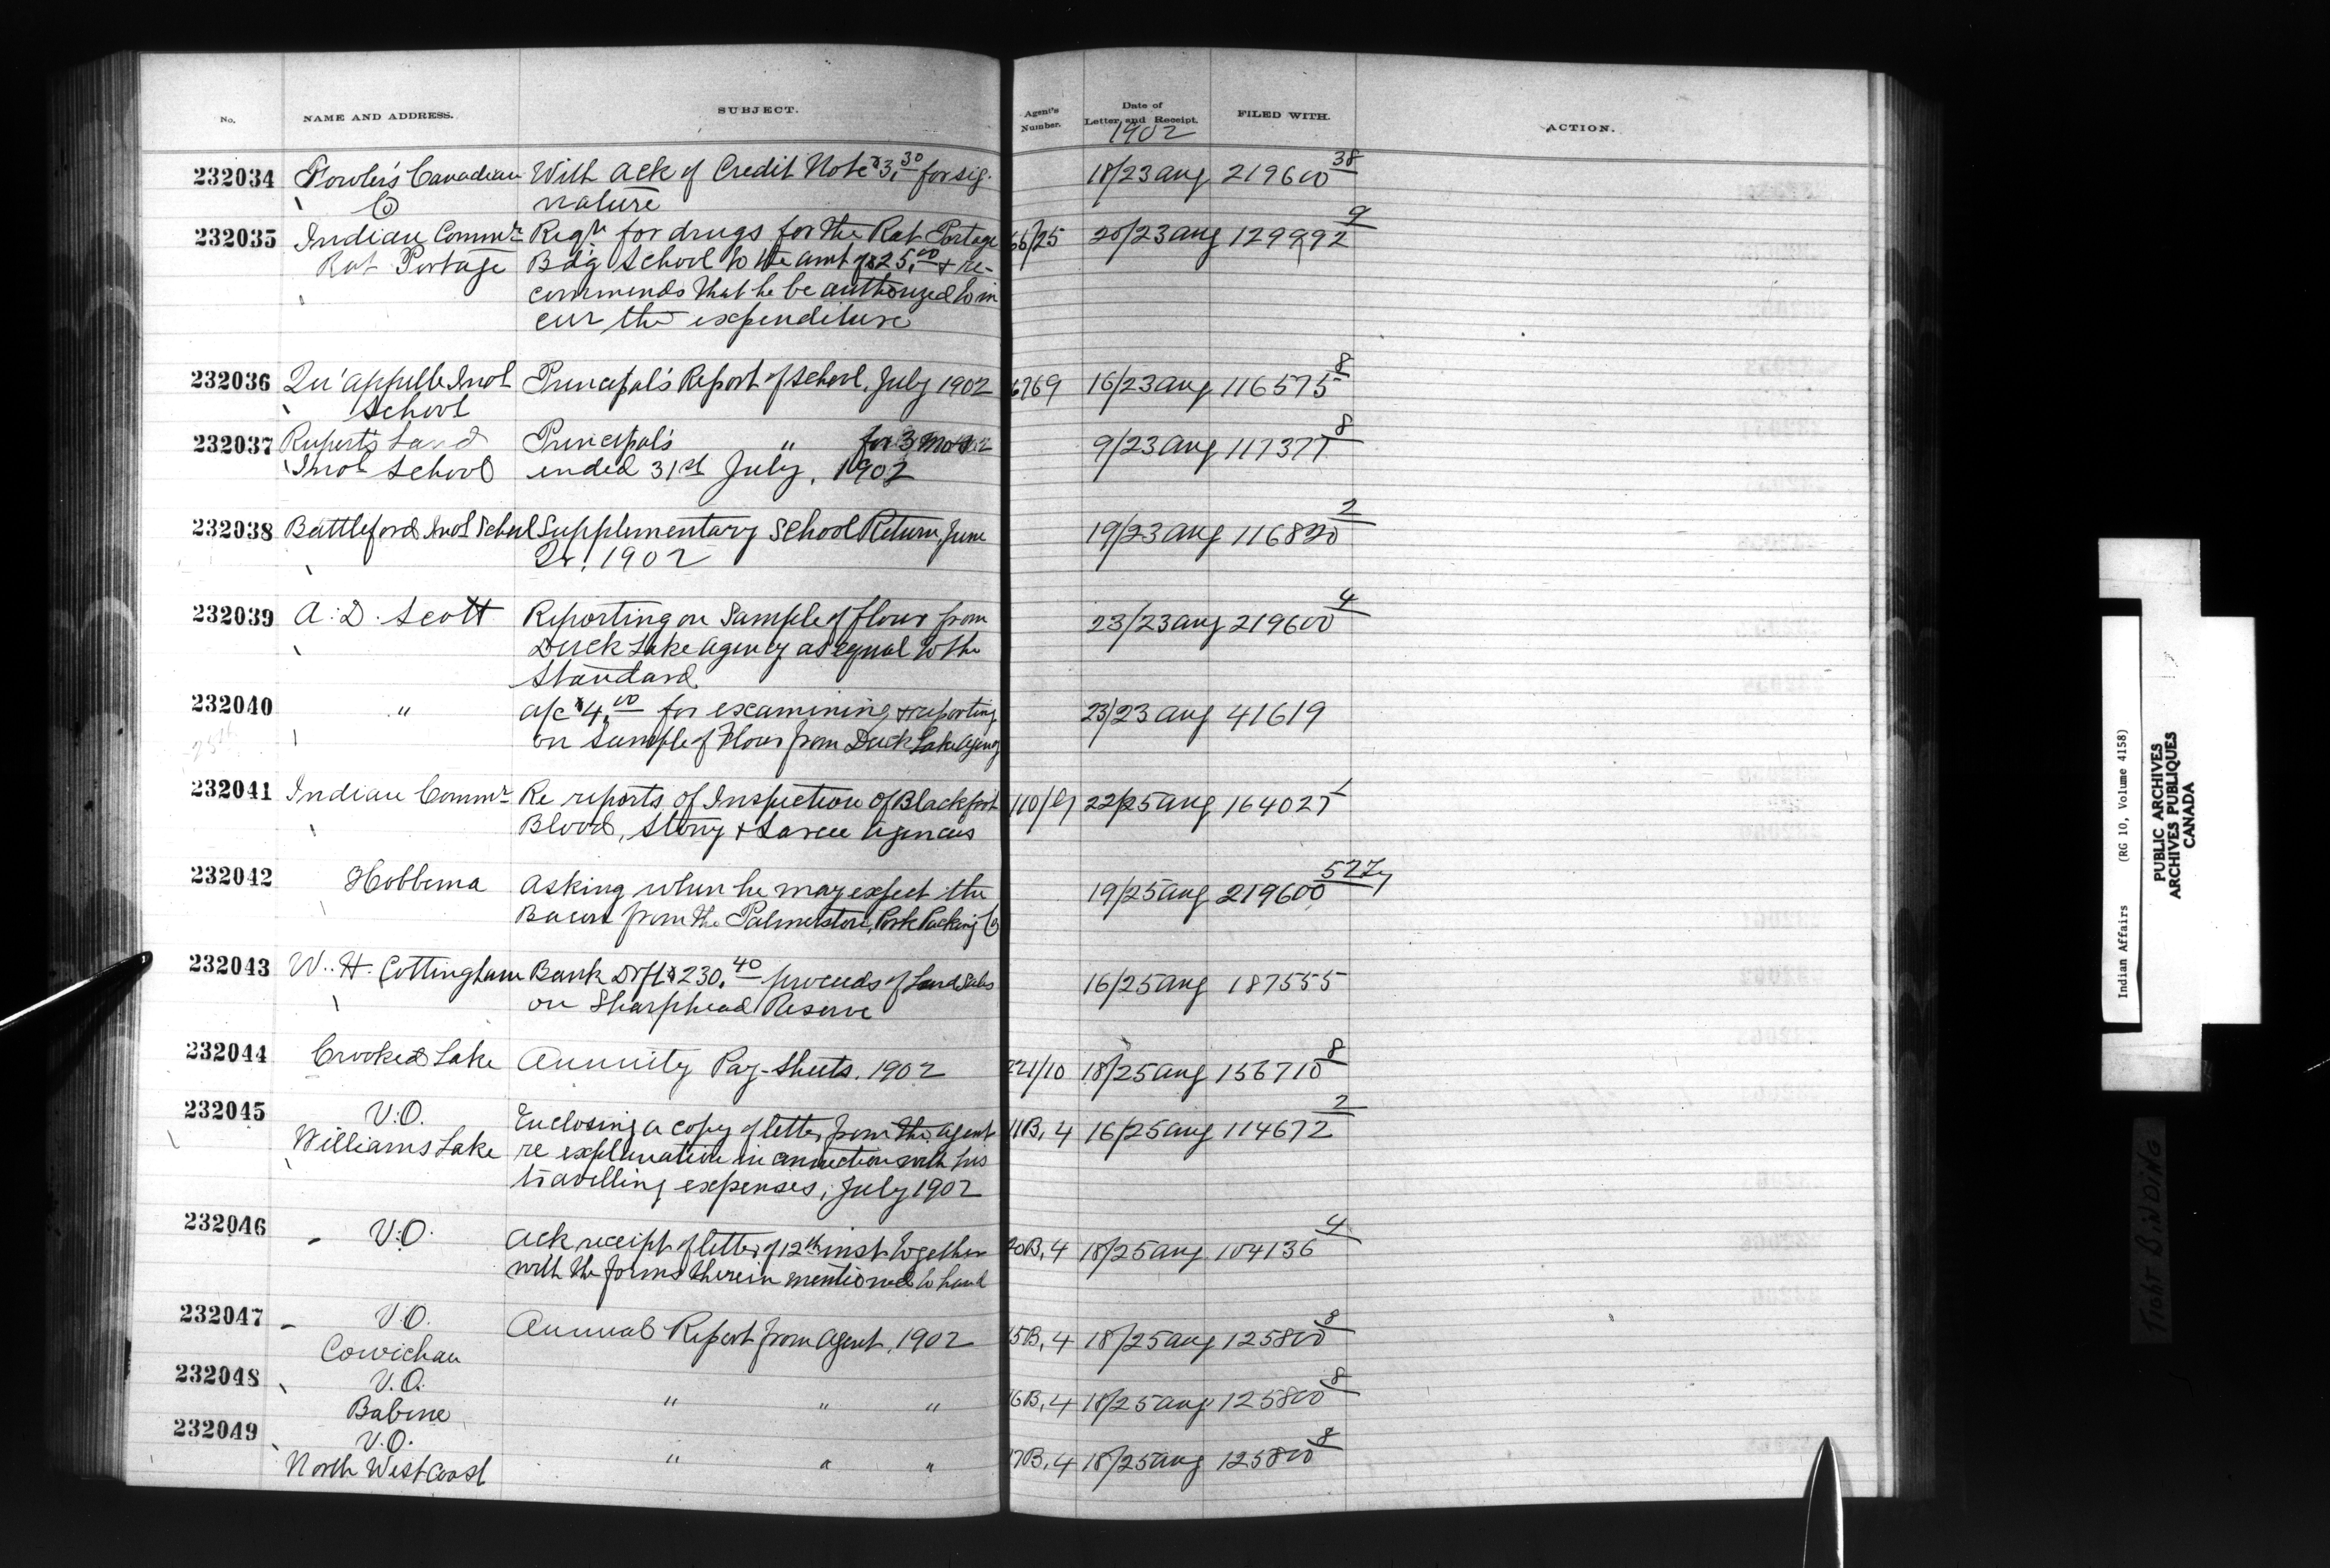 No. NAME AND ADDRESS. SUBJECT. Agent's Number. Date of Letter and Receipt. FILED WITH. ACTION.
1902
232034 Fowler's Canadian With Ack of Credit Note $3.30 for sig- 18/23 Aug 219600 38
Co nature
232035 Indian Commr Reqn for drugs for the Rat Portage 66/25 20/23 Aug 129992 9
Rat Portage Bdg School to the amt of $25.00 & re-
commends that he be authorized to in
cur the expenditure
232036 Qu'appelle Indl Principal's Report of School, July 1902 6769 16/23 Aug 116575 8
School
232037 Ruperts Land Principal's " for 3 mos 9/23 Aug 117377 8
Indl School ended 31st July, 1902
232038 Battleford Indl School Supplementary School Return, June 19/23 Aug 116820 2
Qr. 1902
232039 A. D. Scott Reporting on Sample of flour from 23/23 Aug 219600 4
Duck Lake Agency as equal to the
Standard
232040 " a/c $4.00 for examining & reporting 23/23 Aug 41619
on Sample of Flour from Duck Lake Agency
232041 Indian Commr Re reports of Inspection of Blackfoot 22/25 Aug 164027
Blood, Stony & Sarcee Agencies
232042 Hobbema Asking when he may expect the 19/25 Aug 219600 527
Bacon from the Palmerston Pork Packing Co
232043 W. H. Cottingham Bank Dft $230.40 proceeds of Land Sales 16/25 Aug 187555
on Sharphead Reserve
232044 Crooked Lake Annuity Pay-Sheets. 1902 221/10 18/25 Aug 156710 8
232045 V.O. Enclosing a copy of letter from the agent 11B, 4 16/25 Aug 114672 2
Williams Lake re explanation in connection with his
travelling expenses, July 1902
232046 V.O. Ack receipt of letter of 12th inst together 18/25 Aug 104136 4
with the forms therein mentioned to hand
232047 V.O. Annual Report from Agent, 1902 15B, 4 18/25 Aug 125800 8
Cowichan
232048 V.O. " " " 16B, 4 18/25 Aug 125800 8
Babine
232049 V.O. " " " 17B, 4 18/25 Aug 125800 8
North West Coast
Indian Affairs (RG 10, Volume 4158)
PUBLIC ARCHIVES
ARCHIVES PUBLIQUES
CANADA
TIGHT BINDING